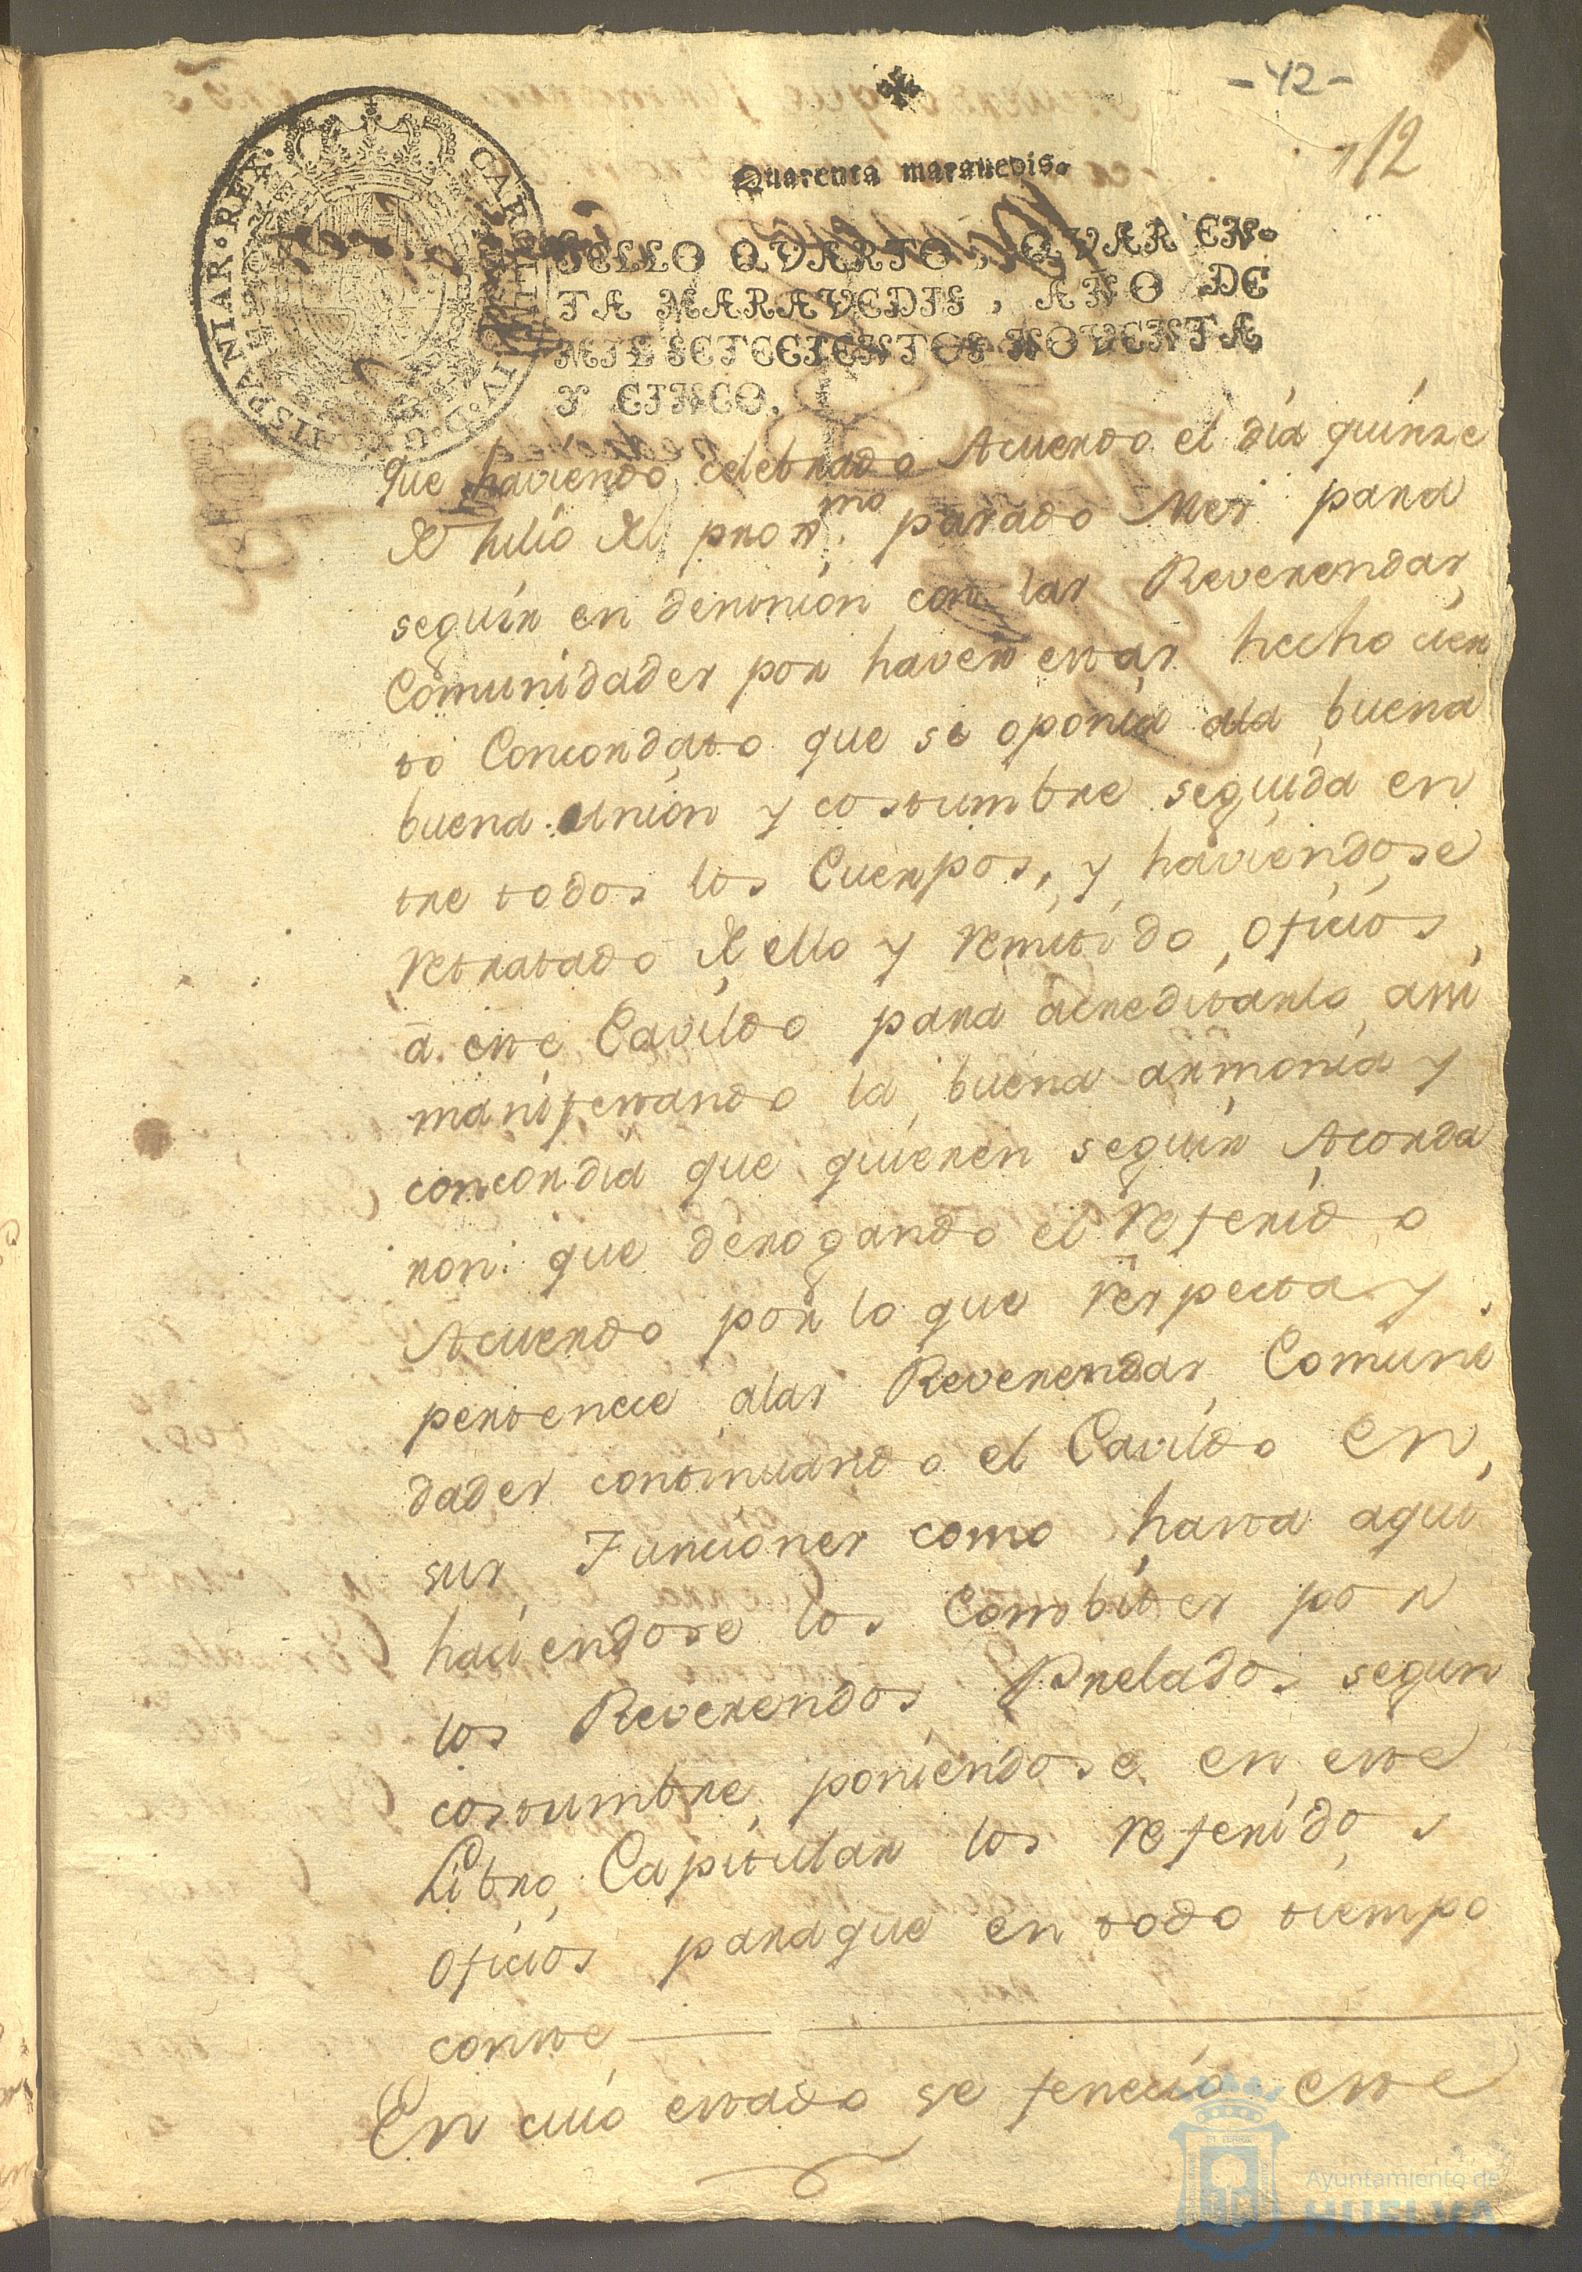 - 42 -
112
Quarenta marauedis.
CAROLUS IV. D. G. HISPANIAR. REX.
SELLO QVARTO, QVAREN-
TA MARAVEDIS, AÑO DE
MIL SETECIENTOS NOVENTA
Y CINCO.
que haviendo celebrado Acuerdo el dia quinze
de Julio del proxmo pasado Mes para
seguir en desunion con las Reverendas
Comunidades por haver estas hecho cier
to Concordato que se oponia ala buena
buena union y costumbre seguida en
tre todos los Cuerpos, y haviendose
retratado de ello y remitido oficios
a este Cavildo para acreditarlo asi
manifestando la buena armonia y
concordia que quieren seguir Acorda
ron: que derogando el referido
Acuerdo por lo que respecta y
pertenece alas Reverendas Comuni
dades continuando el Cavildo en
sus Funciones como hasta aqui
haciendose los Combites por
los Reverendos Prelados segun
costumbre, poniendose en este
Libro Capitular los referidos
oficios paraque en todo tiempo
conste
En cuio estado se feneció este
Ayuntamiento de
HUELVA